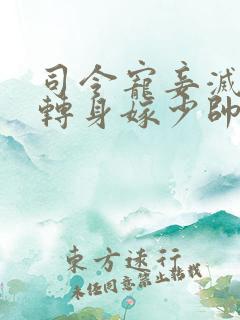 司令寵妾滅
轉身嫁少帥
東方遠行
未經同意禁止轉載